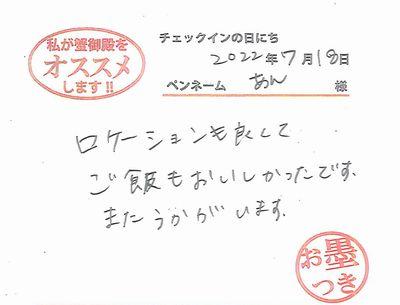 私が蟹御殿を
オススメ
します!!
チェックインの日にち
2022年7月18日
ペンネーム あん 様
ロケーションも良くて
ご飯もおいしかったです。
またうかがいます。
お墨
つき